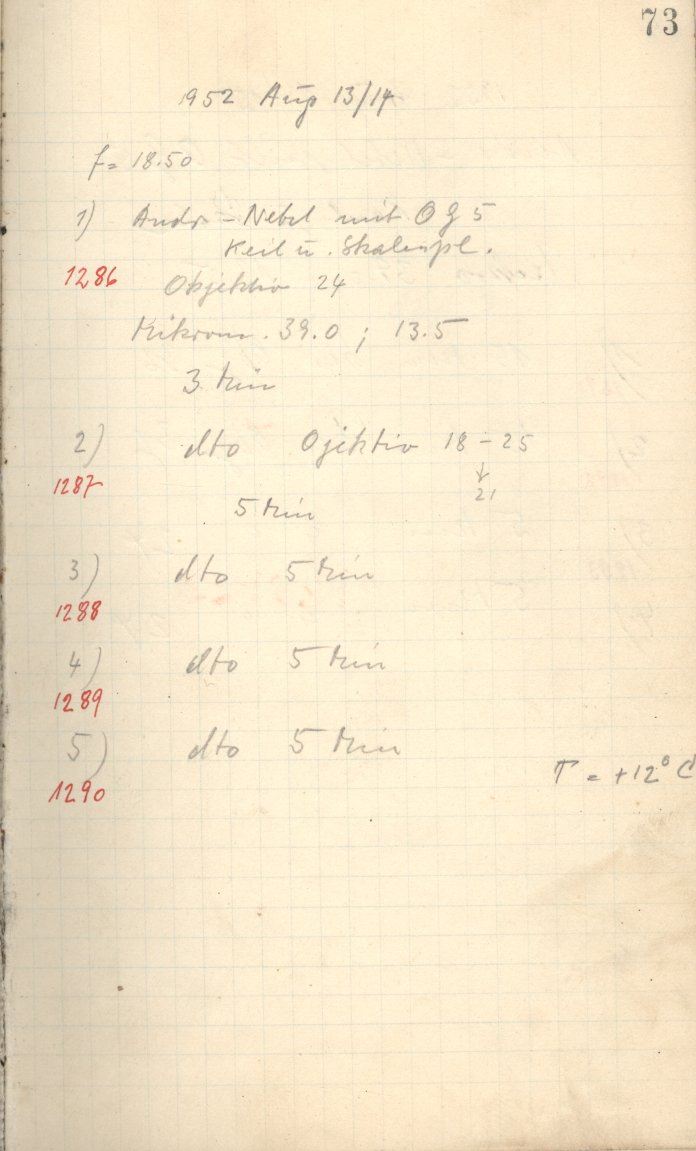 73
1952 Aug 13/14
f = 18.50
1) Andr-Nebel mit OG 5
Keil u. Skalenpl.
1286 Objektiv 24
Mikrom. 39.0 ; 13.5
3 Min
2) dto Ojektiv 18-25
↓
1287 21
5 Min
3) dto 5 Min
1288
4) dto 5 Min
1289
5) dto 5 Min
T = +12° C
1290